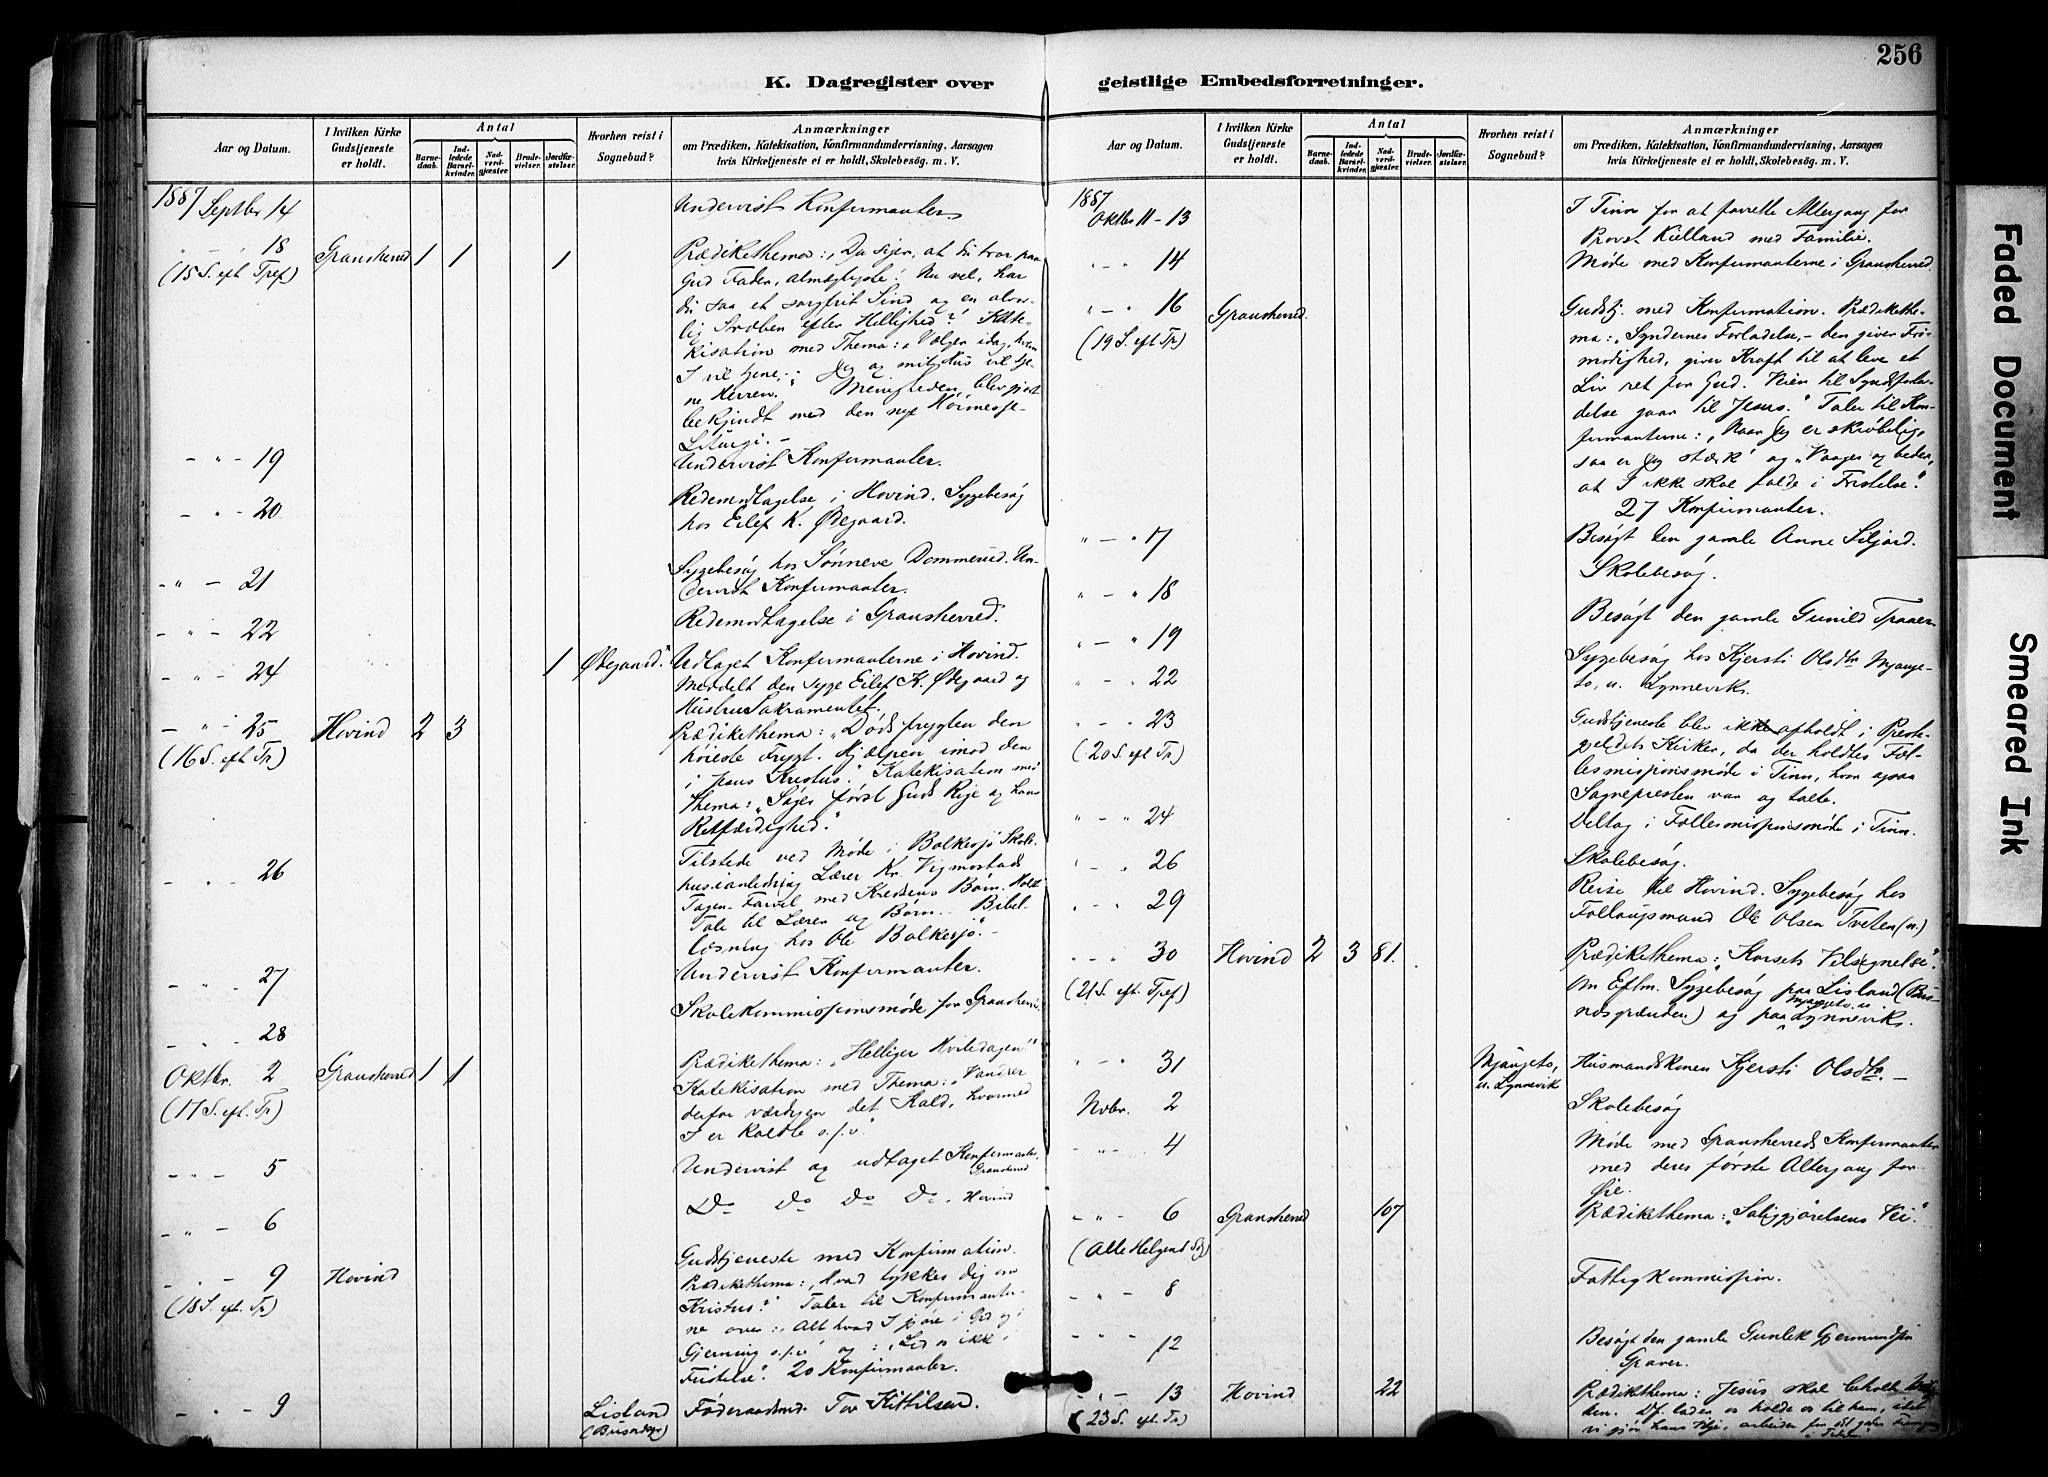 256
K. Dagregister over geistlige Embedsforretninger.
Aar og Datum.
I hvilken Kirke Gudstjeneste er holdt.
Antal
Barnedaab.
Indledede Barselkvinder.
Nadverdgjester.
Brudevielser.
Jordfæstelser.
Hvorhen reist i Sognebud?
Anmærkninger
om Prædiken, Katekisation, Konfirmandundervisning, Aarsagen
hvis Kirketjeneste ei er holdt, Skolebesög. m. V.
1887 Septbr 14 Undervist Konfirmanter.
" – " 18 Gransherred 1 1 1 Prædikethema: „Du siger, at du tror paa
(15 S. eft Tref) Gud Fader, almægtigste! Nu vel, har
du saa et sorgfrit Sind og en alvor-
lig Stræben efter Hellighed?" Kate-
kisation med Thema: „Vælger idag, hvem
I vil tjene, – Jeg og mit Hus vil tje-
ne Herren. Menigheden blev gjort
bekjendt med den nye Höimesse-
Liturgi. –
– " – 19 Undervist Konfirmanter.
– " – 20 Redemodtagelse i Hovind. Sygebesög
hos Eilef K. Ødegaard.
– " – 21 Sygebesög hos Sönneve Dommerud. Un-
dervist Konfirmanter.
– " – 22 Redemodtagelse i Gransherred.
– " – 24 1 Ødegaard. Udtaget Konfirmanterne i Hovind.
Meddelt den syge Eilef K. Ødegaard og
Hustru Sakramentet.
– " – 25 Hovind 2 3 Prædikethema: „Dödsfrygten den
(16 S. eft Tr) höieste Frygt. Hjælpen imod den
i Jesus Kristus". Katekisation med
Thema: „Söger först Guds Rige og hans
Retfærdighed."
– " – 26 Tilstede ved Möde i Bolkesjö Skole-
hus i anledning Lærer Kr. Vigmostads
Tagen-Farvel med Kredsens Börn. Holdt
Tale til Lærer og Börn. – Bibel-
læsning hos Ole Bolkesjö. –
– " – 27 Undervist Konfirmanter.
– " – 28 Skolekommissionsmöde for Gransherred
Oktbr. 2 Gransherred 1 1 Prædikethema: „Helliger Hviledagen!"
(17 S. eft. Tr) Katekisation med Thema: „Vandrer
derfor værdigen det Kald, hvormed
I er kaldte o.s.v."
" – " 5 Undervist og udtaget Konfirmanter, Gransherred
" – " 6 Do Do Do Do Hovind
– " – 9 Hovind Gudstjeneste med Konfirmation.
(18 S. eft. Tr) Prædikethema: „Hvad tykkes dig om
Kristus?" Taler til Konfirmanter-
ne over: „Alt hvad I gjöre i Ord og i
Gjerning o.s.v" og: „Led os ikke i
Fristelse". 20 Konfirmanter.
– " – 9 Lisland Föderaadsmd. Tov Kittilsen.
Aar og Datum.
I hvilken Kirke Gudstjeneste er holdt.
Antal
Barnedaab.
Indledede Barselkvinder.
Nadverdgjester.
Brudevielser.
Jordfæstelser.
Hvorhen reist i Sognebud?
Anmærkninger
om Prædiken, Katekisation, Konfirmandundervisning, Aarsagen
hvis Kirketjeneste ei er holdt, Skolebesög. m. V.
1887 Oktbr 11–13 I Tinn for at forrette Altergang for
Provst Kielland med Familie.
" – " 14 Möde med Konfirmanterne i Gransherred.
" – " 16 Gransherred. Gudstj. med Konfirmation. Prædikethe-
(19 S. eft Tr) ma: „Syndernes Forladelse, – den giver Fri-
modighed, giver Kraft til at leve et
Liv ret for Gud. Veien til Syndsforla-
delse gaar til Jesus." Taler til Kon-
firmanterne: „Naar jeg er skröbelig,
saa er jeg stærk" og „Vaager og beder,
at I ikke skal falde i Fristelse".
27 Konfirmanter.
" – " 17 Besögt den gamle Anne Siljord.
" – " 18 Skolebesög.
" – " 19 Besögt den gamle Gunild Traaen
" – " 22 Sygebesög hos Kjersti Olsdtr Mjauge-
to, u. Lynnevik.
" – " 23 Gudstjeneste blev ikke afholdt i Preste-
(20 S. eft Tr) gjeldets Kirker, da der holdtes Fæl-
lesmissionsmöde i Tinn, hvor ogsaa
Sognepresten var og talte.
" – " 24 Deltog i Fællesmissionsmöde i Tinn.
" – " 26 Skolebesög.
" – " 29 Reise til Hovind. Sygebesög hos
Ole Olsen Tveten (u.)
" – " 30 Hovind 2 3 81. Prædikethema: „Korsets Velsignelse".
(21 S. eft. Tref) Om Eftm. Sygebesög paa Lisland (Bus-
nesgrænden) og paa Mjaugeto u. Lynnevik.
" – " 31 Mjaugeto, u. Lynnevik Husmandskonen Kjersti Olsdtr. –
Novbr. 2 Skolebesög
– " – 4 Möde med Gransherreds Konfirmanter
med deres förste Altergang for
Øie.
– " – 6 Gransherred 107 Prædikethema: „Saliggjörelsens Vei."
(Alle Helgens Dg)
– " – 8 Fattigkommission.
– " – 12 Besögt den gamle Gunlek Gjermundsen
Graver.
– " – 13 Hovind 22 Prædikthema: Jesus skal beholde
(23 S. eft. Tr) den. Df. lader os holde os til ham, idet
vi gjör hans Vilje, arbeider for
Faded Document
Smeared Ink